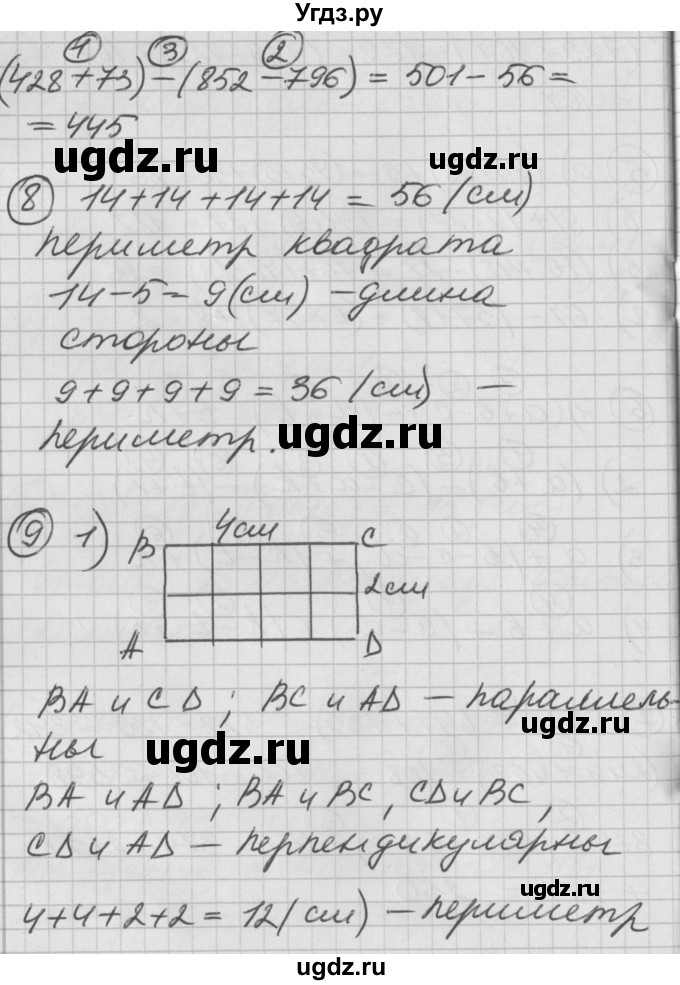 Угдз.ру
1 3 2
(428+73)-(852-796) = 501-56=
=445
ugdz.ru ugdz.ru
8 14+14+14+14 = 56 (см)
периметр квадрата
14-5=9(см) -длина
стороны
9+9+9+9=36 (см) —
периметр. ugdz.ru
9 1) B 4см C
2см
A D
BA и CD; BC и AD — параллель-
ны ugdz.ru ugdz.ru
BA и AD; BA и BC, CD и BC,
CD и AD — перпендикулярны
ugdz.ru
4+4+2+2=12(см) —периметр
ugdz.ru